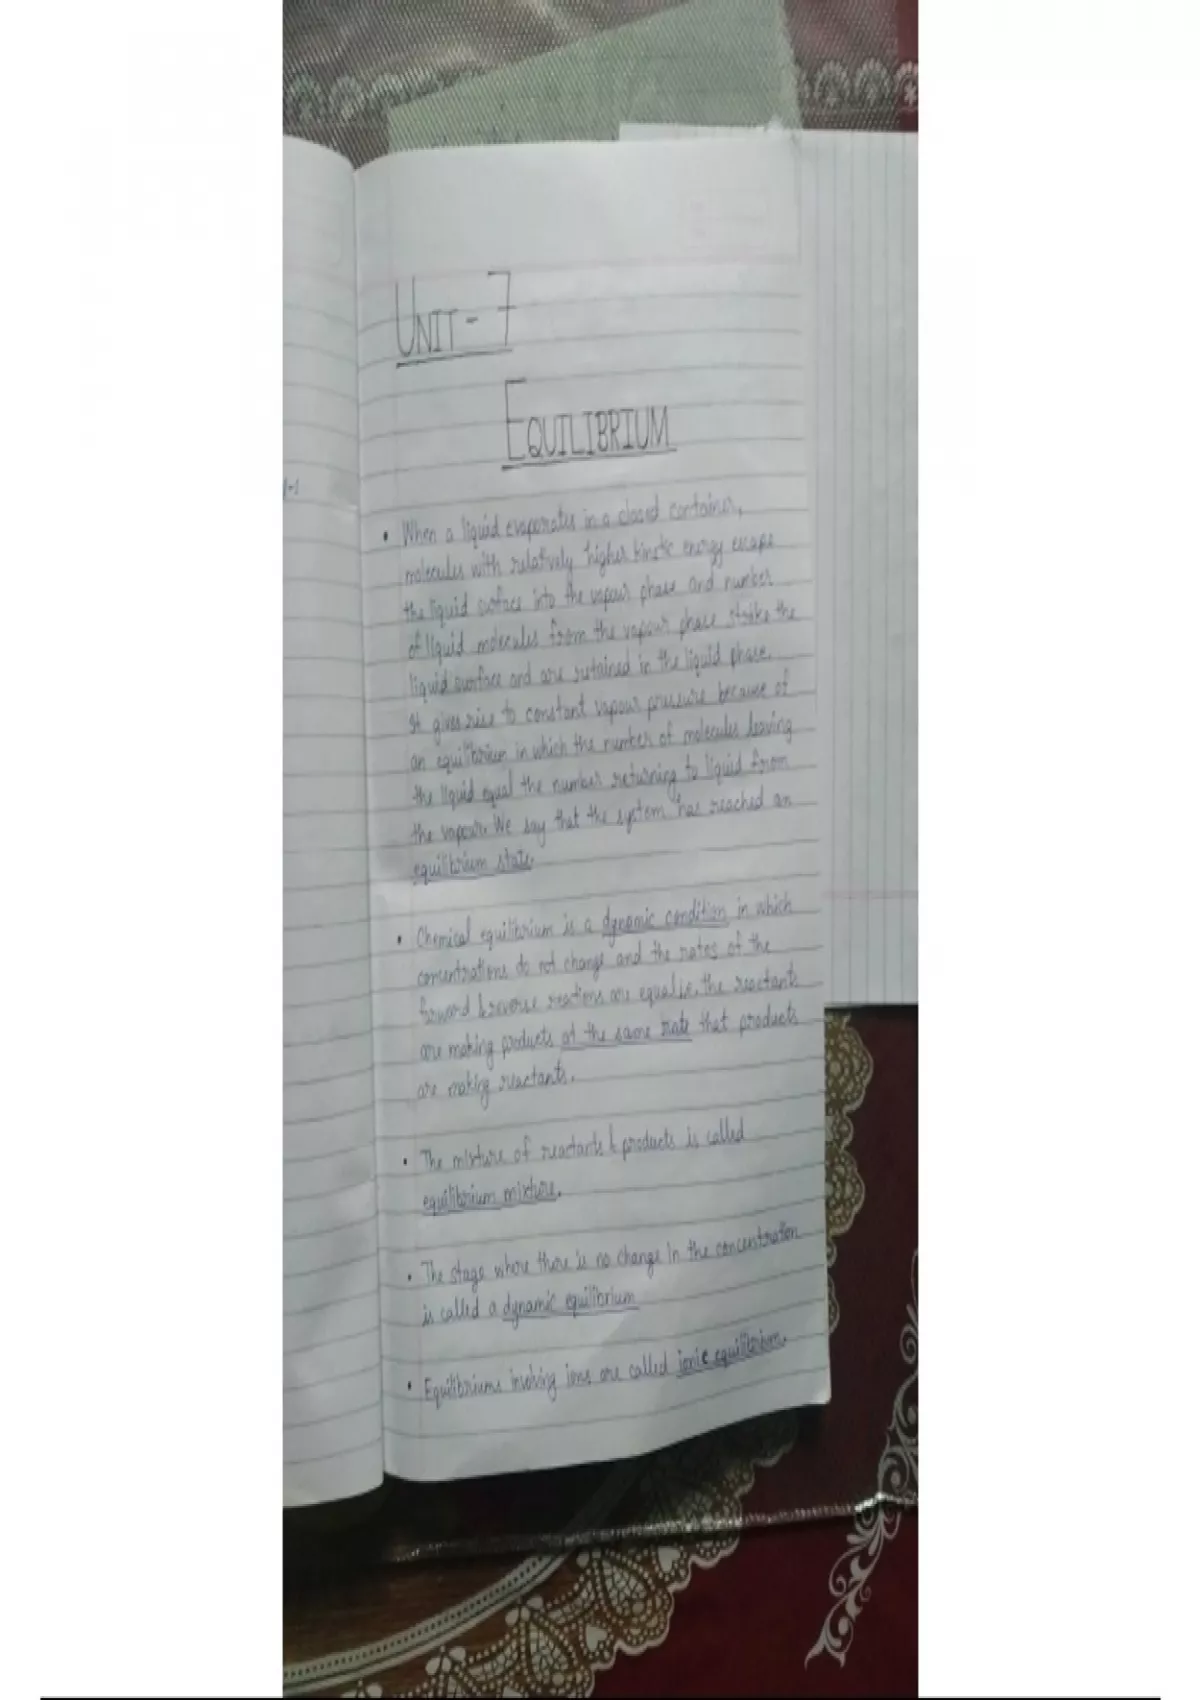 UNIT - 7
EQUILIBRIUM
• When a liquid evaporates in a closed container,
molecules with relatively higher kinetic energy escape
the liquid surface into the vapour phase and number
of liquid molecules from the vapour phase strike the
liquid surface and are retained in the liquid phase.
It gives rise to constant vapour pressure because of
an equilibrium in which the number of molecules leaving
the liquid equal the number returning to liquid from
the vapour. We say that the system has reached an
equilibrium state.
• Chemical equilibrium is a dynamic condition in which
concentrations do not change and the rates of the
forward & reverse reactions are equal i.e. the reactants
are making products at the same rate that products
are making reactants.
• The mixture of reactants & products is called
equilibrium mixture.
• The stage where there is no change in the concentration
is called a dynamic equilibrium
• Equilibriums involving ions are called ionic equilibrium.